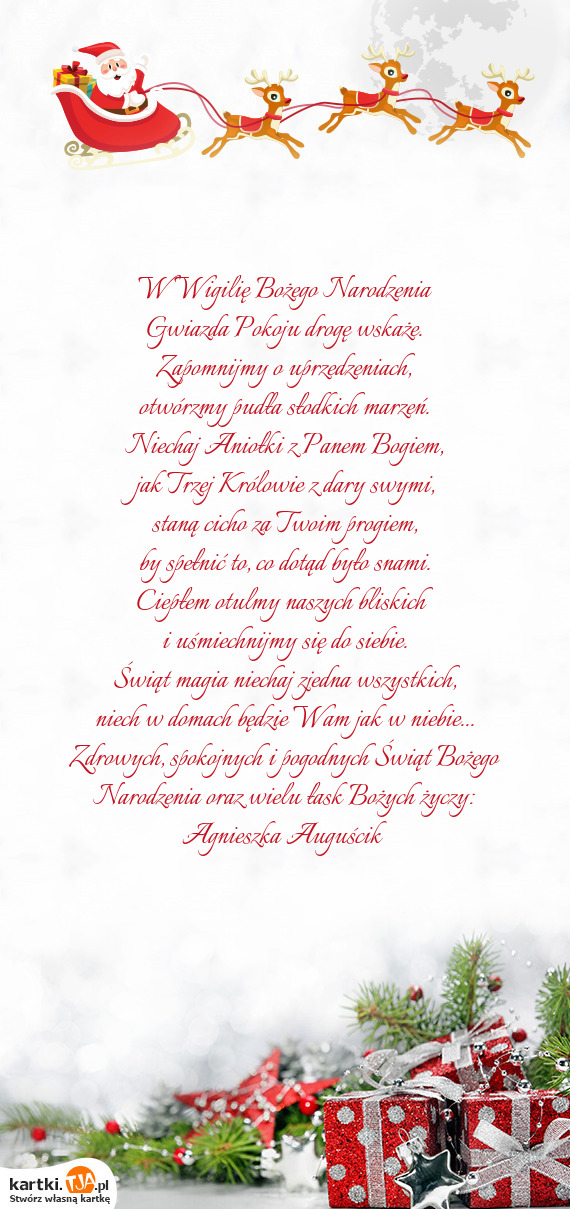 W Wigilię Bożego Narodzenia
Gwiazda Pokoju drogę wskaże.
Zapomnijmy o uprzedzeniach,
otwórzmy pudła słodkich marzeń.
Niechaj Aniołki z Panem Bogiem,
jak Trzej Królowie z dary swymi,
staną cicho za Twoim progiem,
by spełnić to, co dotąd było snami.
Ciepłem otulmy naszych bliskich
i uśmiechnijmy się do siebie.
Świąt magia niechaj zjedna wszystkich,
niech w domach będzie Wam jak w niebie...
Zdrowych, spokojnych i pogodnych Świąt Bożego
Narodzenia oraz wielu łask Bożych życzy:
Agnieszka Auguścik
kartki.TJA.pl
Stwórz własną kartkę